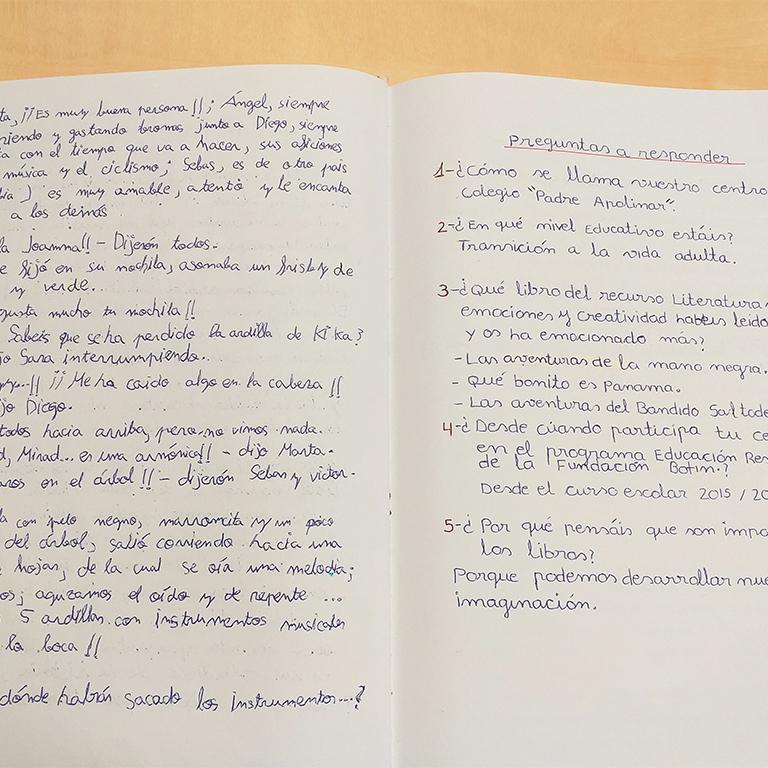 ta, ¡¡Es muy buena persona!!; Ángel, siempre
riendo y gastando bromas junto a Diego, siempre
ta con el tiempo que va a hacer, sus aficiones
música y el ciclismo; Sebas, es de otro pais
bia) es muy amable, atento y le encanta
a los demás
la Joamma!! - Dijerón todos.
e fijó en su mochila, asomaba un frisby de
y verde..
gusta mucho tu mochila!!
Sabeis que se ha perdido la ardilla de Kika?
jo Sara interrumpiendo..
¡¡Me ha caido algo en la cabeza!!
jo Diego.
todos hacia arriba, pero no vimos nada.
d, Mirad... es una armónica!! - dijo Marta.
aros en el árbol!! - dijerón Sebas y victor.
la con pelo negro, marroncita y un poco
del árbol, salió corriendo hacia una
e hojas, de la cual se oía una melodia;
os; aguzamos el oído y de repente ...
5 ardillas con instrumentos musicales
la boca!!
dónde habrán sacado los instrumentos...?
Preguntas a responder
1-¿Cómo se llama nuestro centro
Colegio "Padre Apolinar".
2-¿En qué nivel Educativo estáis?
Transición a la vida adulta.
3-¿Qué libro del recurso Literatura
emociones y creatividad habeis leido
y os ha emocionado más?
- Las aventuras de la mano negra.
- Qué bonito es Panama.
- Las aventuras del Bandido Saltode
4-¿Desde cúando participa tu ce
en el programa Educación Res
de la Fundación Botin?
Desde el curso escolar 2015/20
5-¿Por qué pensáis que son impo
los libros?
Porque podemos desarrollar nue
imaginación.